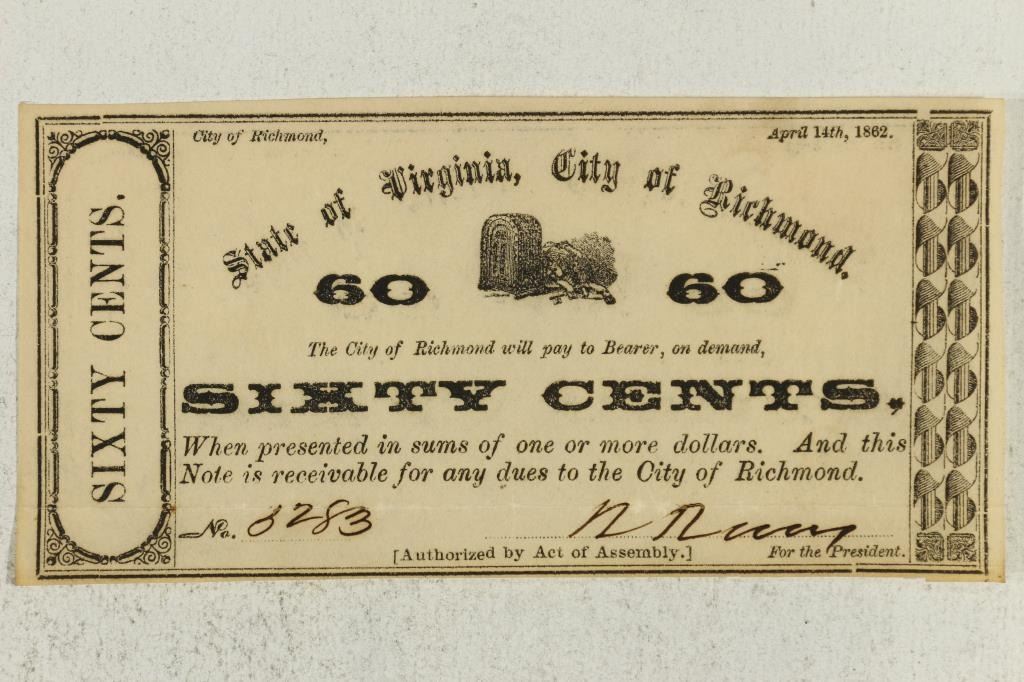 City of Richmond,
April 14th, 1862.
State of Virginia, City of Richmond.
60 60
The City of Richmond will pay to Bearer, on demand,
SIXTY CENTS.
When presented in sums of one or more dollars. And this
Note is receivable for any dues to the City of Richmond.
No. 3283
[Authorized by Act of Assembly.]
For the President.
SIXTY CENTS.